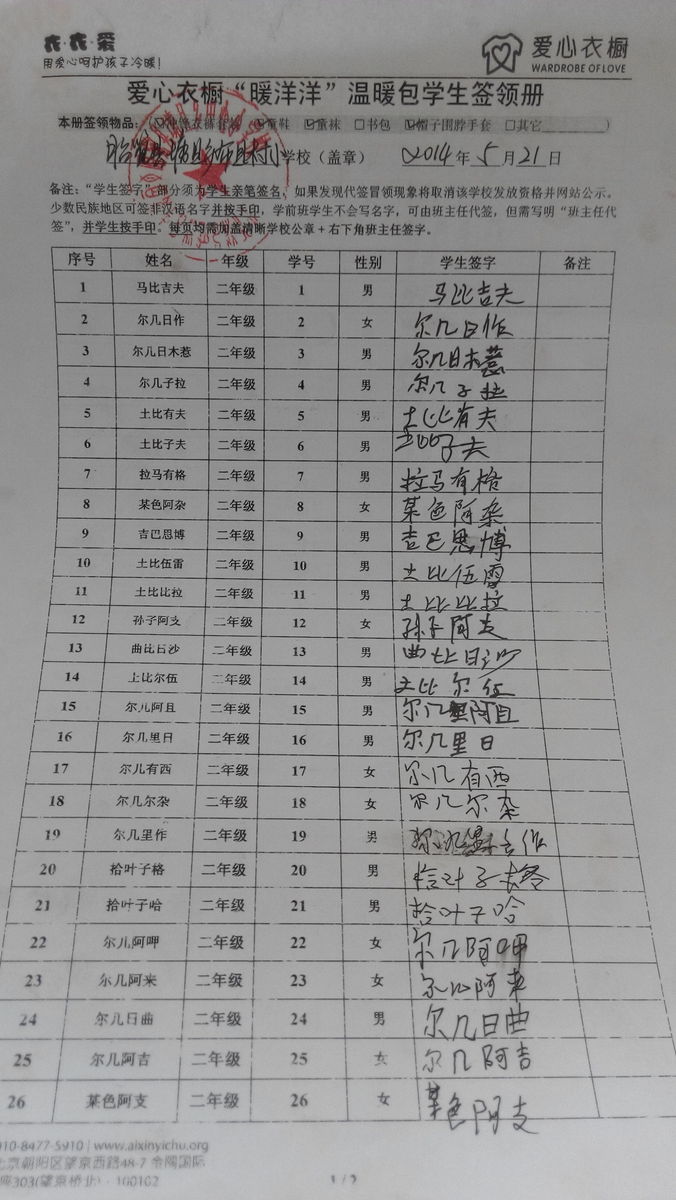 衣·衣·爱
用爱心呵护孩子冷暖！
爱心衣橱
WARDROBE OF LOVE
爱心衣橱“暖洋洋”温暖包学生签领册
本册签领物品： 童鞋 ☑童袜 □书包 ☑帽子围脖手套 □其它
学校（盖章） 2014年5月21日
备注：“学生签字”部分须为学生亲笔签名，如果发现代签冒领现象将取消该学校发放资格并网站公示。
少数民族地区可签非汉语名字并按手印，学前班学生不会写名字，可由班主任代签，但需写明“班主任代
签”，并学生按手印。每页均需加盖清晰学校公章+右下角班主任签字。
序号 姓名 年级 学号 性别 学生签字 备注
1 马比吉夫 二年级 1 男 马比吉夫
2 尔几日作 二年级 2 女 尔几日作
3 尔几日木惹 二年级 3 男 尔几日木惹
4 尔几子拉 二年级 4 男 尔几子拉
5 土比有夫 二年级 5 男 土比有夫
6 土比子夫 二年级 6 男 土比子夫
7 拉马有格 二年级 7 男 拉马有格
8 某色阿杂 二年级 8 女 某色阿杂
9 吉巴恩博 二年级 9 男 吉巴恩博
10 土比伍雷 二年级 10 男 土比伍雷
11 土比比拉 二年级 11 男 土比比拉
12 孙子阿支 二年级 12 女 孙子阿支
13 曲比日沙 二年级 13 男 曲比日沙
14 土比尔伍 二年级 14 男 土比尔伍
15 尔几阿且 二年级 15 男 尔几阿且
16 尔几里日 二年级 16 男 尔几里日
17 尔几有西 二年级 17 女 尔几有西
18 尔几尔杂 二年级 18 女 尔几尔杂
19 尔几里作 二年级 19 男
20 拾叶子格 二年级 20 男 拾叶子格
21 拾叶子哈 二年级 21 男 拾叶子哈
22 尔几阿呷 二年级 22 女 尔几阿呷
23 尔几阿来 二年级 23 女 尔几阿来
24 尔几日曲 二年级 24 男 尔几日曲
25 尔几阿吉 二年级 25 女 尔几阿吉
26 某色阿支 二年级 26 女 某色阿支
010-8477-5910 | www.aixinyichu.org
北京朝阳区望京西路48-7 金隅国际
座303(望京桥北) · 100102
1/2